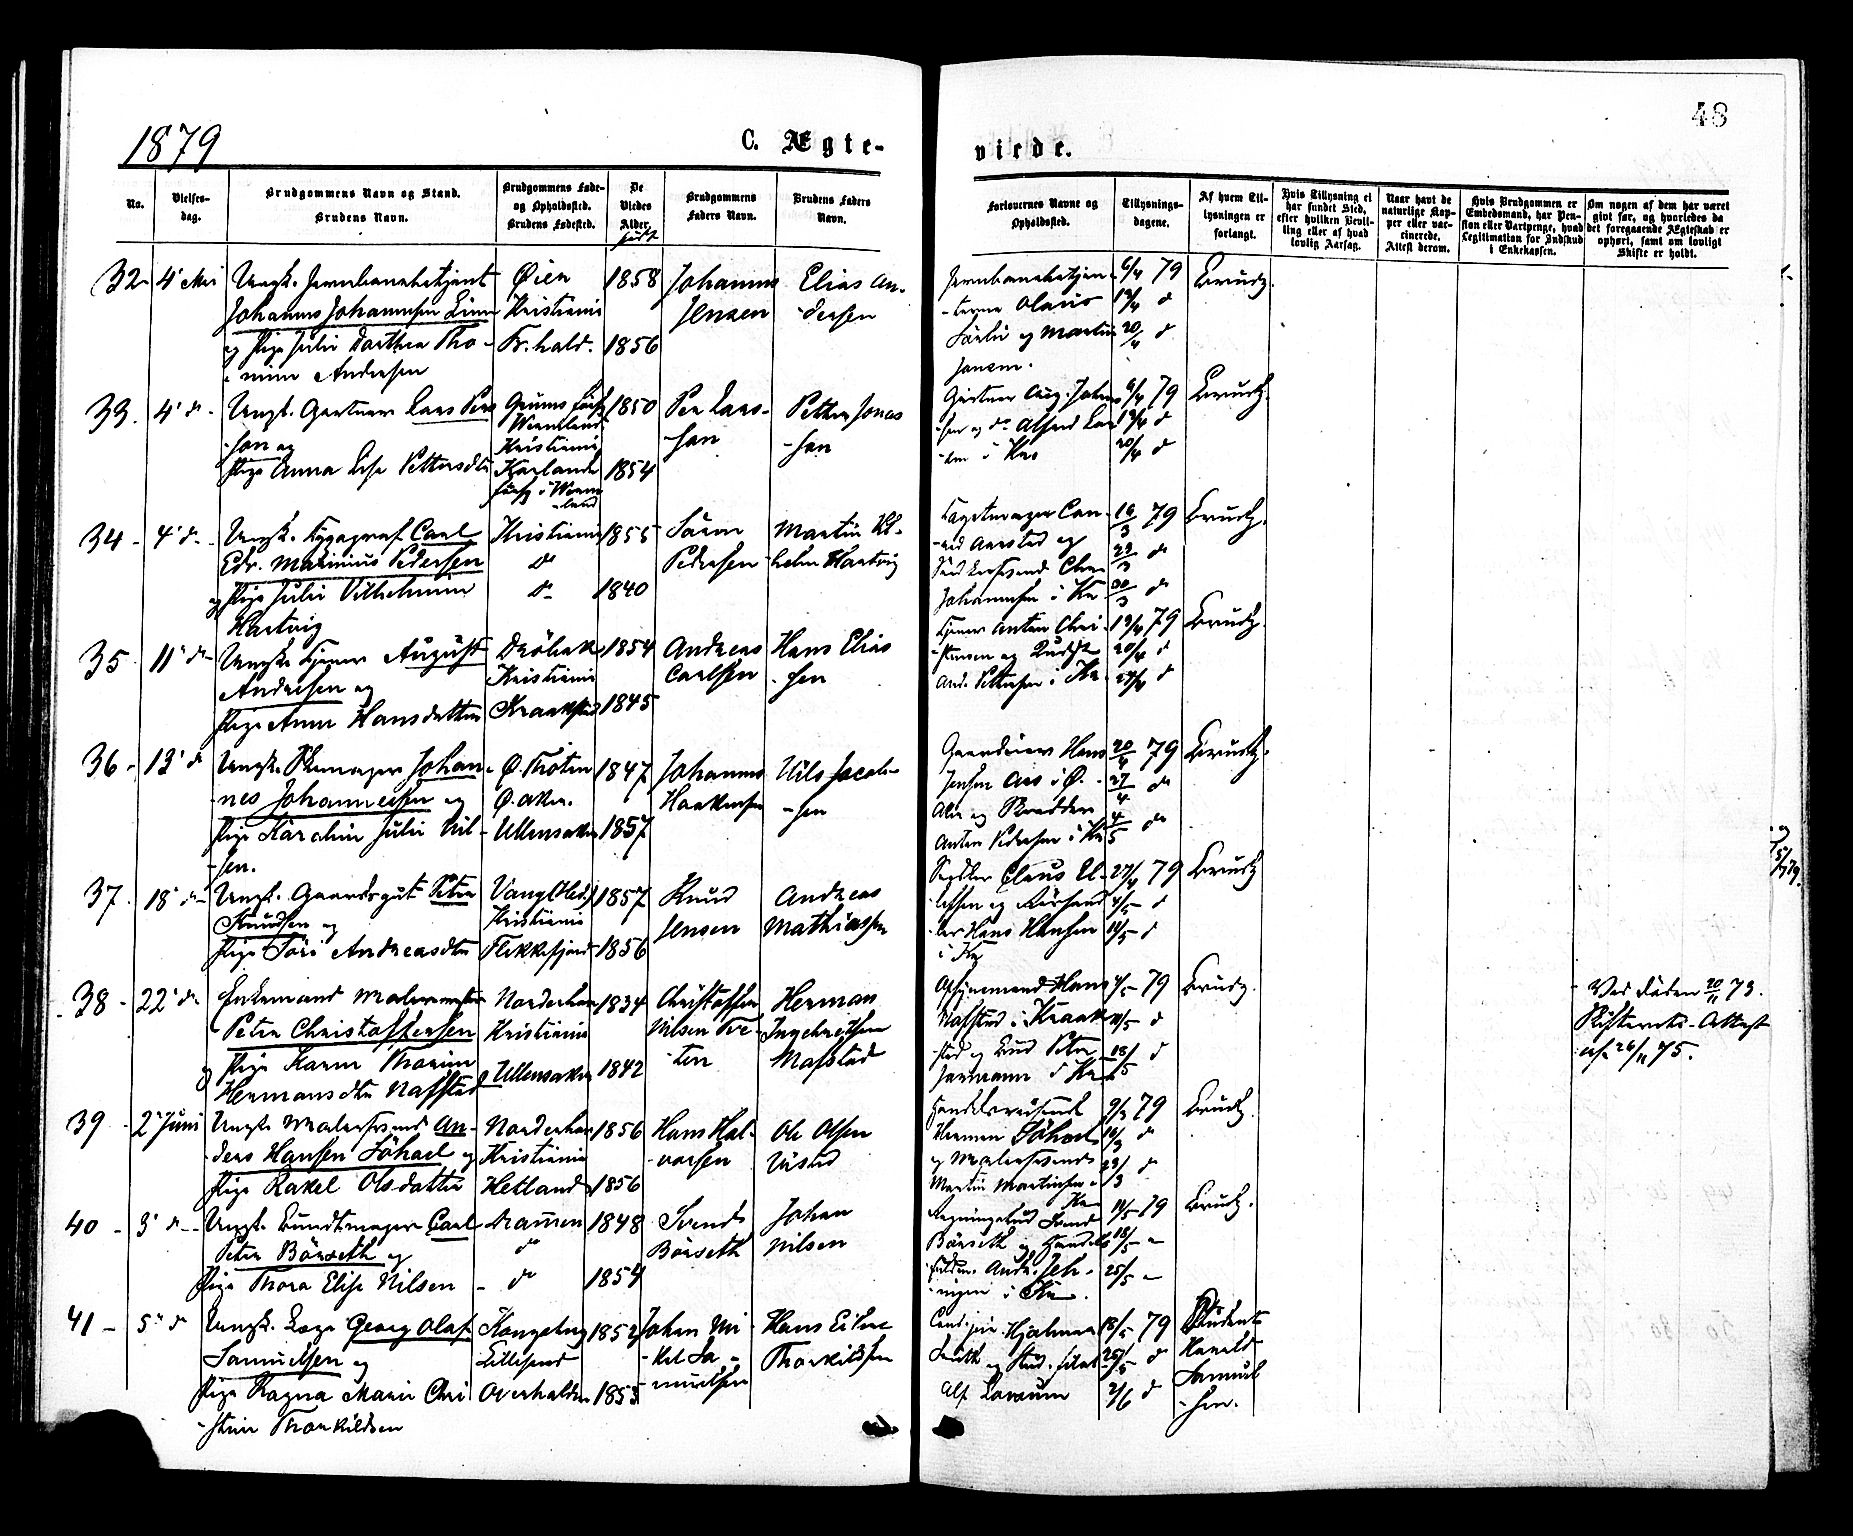 48
1879
C. Ægte-
viede.
No.
Vielses-
dag.
Brudgommens Navn og Stand.
Brudens Navn.
Brudgommens Føde-
og Opholdssted.
Brudens Fødested.
De
Viedes
Alder
født
Brudgommens
Faders Navn.
Brudens Faders
Navn.
Forlovernes Navne og
Opholdssted.
Tillysnings-
dagene.
Af hvem Til-
lysningen er
forlangt.
Hvis Tillysning ei
har fundet Sted,
efter hvilken Bevil-
ling eller af hvad
lovlig Aarsag.
Naar havt de
naturlige Kop-
per eller vac-
cinerede.
Attest derom.
Hvis Brudgommen er
Embedsmand, har Pen-
sion eller Vartpenge, hvad
Legitimation for Indskud
i Enkekassen.
Om nogen af dem har været
gift før, og hvorledes da
det foregaaende Ægteskab er
ophørt, samt om lovligt
Skifte er holdt.
32 - 4' Mai
Ungk. Jernbanebetjent
Johannes Johannesen Linn
og Pige Julie Dorthea Tho-
mine Andersen
Øien
Kristiania
Fr.hald.
1858
1856
Johannes
Jensen
Elias An-
dersen
Jernbanebetjen-
terne Olaus
og Martin
Jansen.
6/4 79
13/4 d
20/4 d
Brudg.
33. 4' d -
Ungk. Gartner Lars Pers-
son og
Pige Anna Lisa Pettersdtr
Grums
Wermland
Kristiania
Karlanda
förs. i Werm-
land
1850
1854
Per Lars-
son
Petter Jonas-
son
Gartner Aug. Johan-
sen og do Alfred Lar-
sen i Kra
6/4 79
13/4 d
20/4 d
Brudg.
34 - 4' d -
Ungk. Typograf Carl
Edv. Maximius Pedersen
og Pige Julie Vilhelmine
Hartvig
Kristiania
d
d -
1855
1840
Sören
Pedersen
Martin Vil-
helm Hartvig
Aarstad og
Johannesen i Kra
16/3 79
23/3 d
30/3 d
Brudg.
35 11' d -
Ungk. Tjener August
Andersen og
Pige Anne Hansdatter
Dröbak
Kristiania
Kraakstad
1854
1845
Andreas
Carlsen
Hans Elias-
sen
Tjener Anton Chri-
stensen og
And. Pettersen i Kra.
13/4 79
20/4 d
27/4 d
Brudg.
36 - 13' d
Ungk. Skomager Johan-
nes Johannessen og
Pige Karoline Julie Nil-
sen.
Ø. Thoten
Ø. Aker.
Ullensaker
1847
1857
Johannes
Haakensen
Nils Jacob-
sen
Gaardeier Hans
Jensen Aas i Ø.
Aker og Skrædder
Anton Pedersen i Kra
20/4 79
27/4 d
4/5 d
Brudg.
37. 18' d -
Ungk. Gaardsgut Peter
Knudsen og
Pige Tori Andreasdtr
Vang (Hed.)
Kristiania
Flekkefjord
1857
1856
Knud
Jensen
Andreas
Mathiassen
Snedker Claus El-
lefsen og
Hans Hansen
i Kra
27/4 79
4/5 d
11/5 d
Brudg.
38 - 22' d -
Enkemand Malermester
Peter Christoffersen
og Pige Karen Thorine
Hermansdtr Nafstad
Norderhov
Kristiania
Ullensaker
1834
1842
Christoffer
Nilsen Tve-
ten
Herman
Ingebretsen
Nafstad
Opsynsmand Hans
Nafstad i Kraak-
stad og Bud Peter
Jarmann i Kra
4/5 79
11/5 d
18/5 d
Brudg.
Ved Döden 20/11 73.
Skifterets-Attest
af 26/11 75.
39 - 2' Juni
Ungk. Malersvend An-
ders Hansen Löhael og
Pige Rakel Olsdatter
Norderhov
Kristiania
Hetland
1856
1856
Hans Hal-
vorsen
Ole Olsen
Handelsreisende
Herman
og Malersvend
Martin Martinsen i
Kra
9/3 79
16/3 d
23/3 d
Brudg.
40 - 3' d -
Ungk. Bundtmager Carl
Peter Börseth og
Pige Thora Elise Nilsen
Drammen
d
- d
1848
1854
Svend
Börseth
Johan
Nilsen
Regningsbud Svend
Börseth og Handels-
fuldm. Andr. Joh-
i Kra.
11/5 79
18/5 -
25/5 -
Brudg.
41 - 5' d
Ungk. Læge Georg Olaf
Samuelsen og
Pige Ragna Marie Chri-
stine Thorkildsen
Kongsberg
Lillesand
Overhalden
1852
1853
Johan Mi-
kel Sa-
muelsen
Hans Eilert
Thorkildsen
Cand. jur. Hjalmar
Smith og Stud. filol.
Alf
18/5 79
25/5 d
2/6 d
Student
Harald
Samuel-
sen.